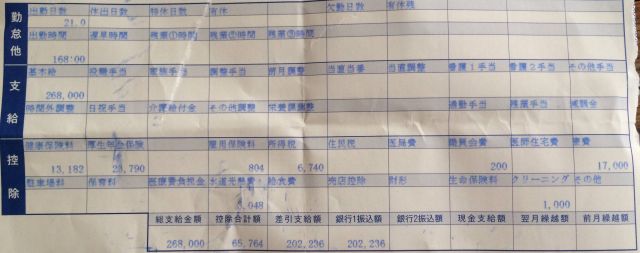 勤怠他
出勤日数 休出日数 特休日数 有休 欠勤日数 有休残
21.0
出勤時間 遅早時間 残業①時間 残業②時間 残業③時間
168:00
支給
基本給 役職手当 家族手当 調整手当 前月調整 当直当番 当直調整 看護1手当 看護2手当 その他手当
268,000
時間外調整 日祝手当 介護給付金 その他調整 通勤手当 残業手当 減額金
控除
健康保険料 厚生年金保険 雇用保険料 所得税 住民税 医局費 職員会費 医師住宅費 寮費
13,182 23,790 804 6,740 200 17,000
駐車場料 保育料 医療費負担金 水道光熱費 給食費 売店控除 財形 生命保険料 クリーニング その他
3,048 1,000
総支給金額 控除合計額 差引支給額 銀行1振込額 銀行2振込額 現金支給額 翌月繰越額 前月繰越額
268,000 65,764 202,236 202,236